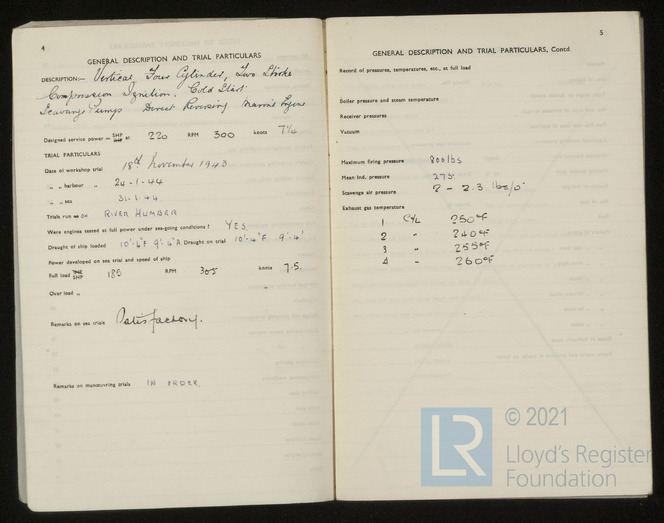 4
GENERAL DESCRIPTION AND TRIAL PARTICULARS
DESCRIPTION:— Vertical, Four Cylinder, Two Stroke
Compression Ignition. Cold Start
Scavange Pumps Direct Reversing Marine Engine
Designed service power = SHP at 220 RPM 300 knots 7¼
TRIAL PARTICULARS
Date of workshop trial 18th November 1943
" " harbour " 24-1-44
" " sea 31-1-44
Trials run on RIVER HUMBER
Were engines tested at full power under sea-going conditions? YES
Draught of ship loaded 10'-6"F 9'-6"A Draught on trial 10'-4"F 9'-4"
Power developed on sea trial and speed of ship
Full load SHP 185 RPM 305 knots 7.5.
Over load " "
Remarks on sea trials Satisfactory.
Remarks on manœuvring trials IN ORDER.
5
GENERAL DESCRIPTION AND TRIAL PARTICULARS, Contd.
Record of pressures, temperatures, etc., at full load
Boiler pressure and steam temperature
Receiver pressures
Vacuum
Maximum firing pressure 800 lbs
Mean ind. pressure 275.
Scavenge air pressure 2 - 2.3 lbs/□"
Exhaust gas temperature
1 CYL 250°F
2 " 240°F
3 " 255°F
4 " 260°F
LR © 2021
Lloyd's Register
Foundation